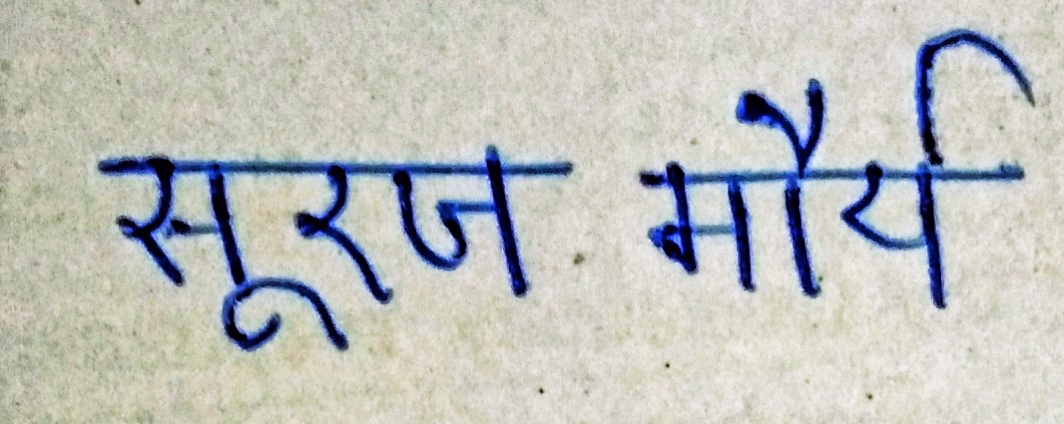 सूरज मौर्य